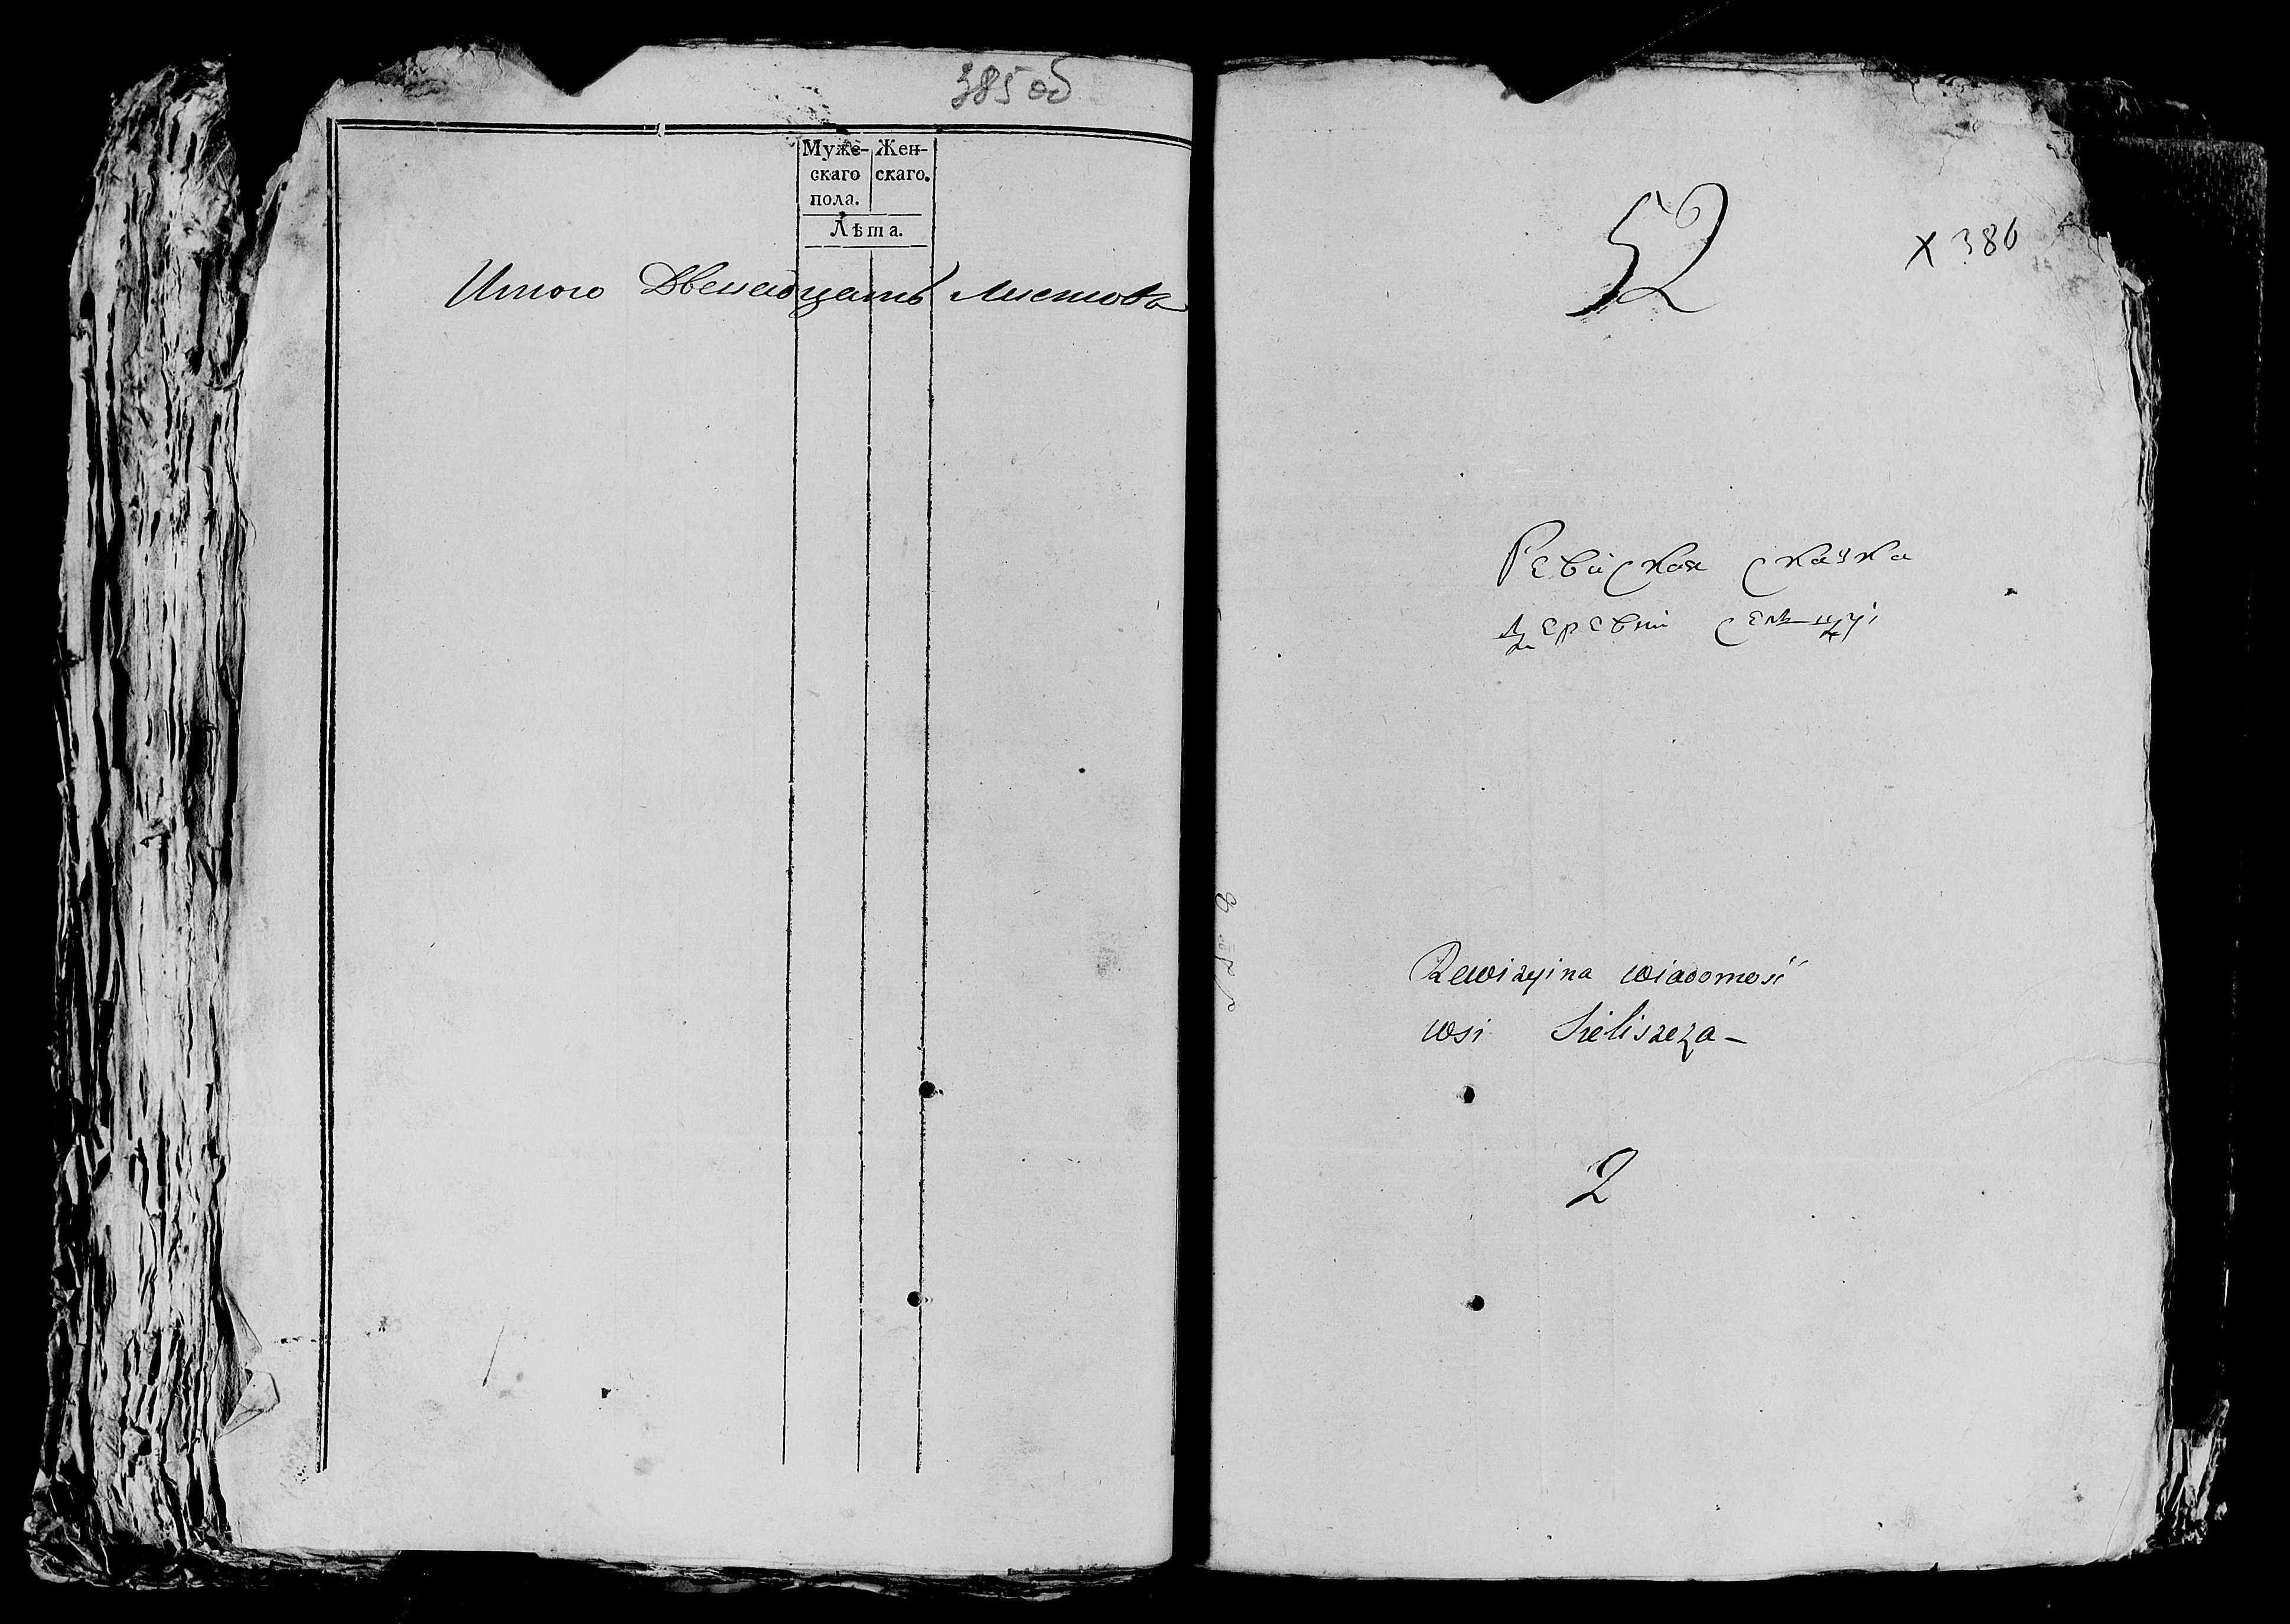 385 об
Муже- Жен-
скаго скаго.
пола.
Лѣта.
Итого Двенадцать листовъ
52
х 386
Ревиская сказка
деревни
Rewizyina wiadomość
wsi Sieliszcza –
2